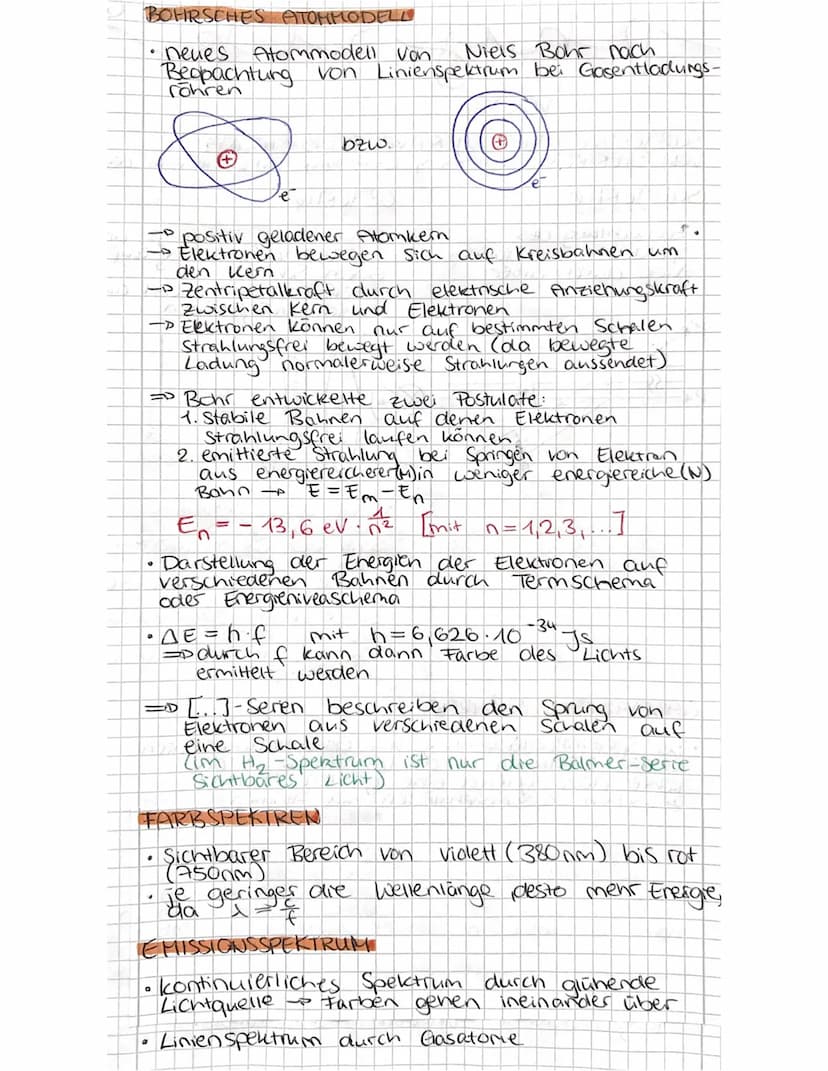 BOHRSCHES ATOMMODELL
• neues Atommodell von Niels Bohr nach
Beobachtung von Linienspektrum bei Gasentladungs-
röhren
bzw.
+
+
e⁻
e⁻
→ positiv geladener Atomkern
→ Elektronen bewegen sich auf Kreisbahnen um
den Kern
→ Zentripetalkraft durch elektrische Anziehungskraft
zwischen Kern und Elektronen
→ Elektronen können nur auf bestimmten Schalen
strahlungsfrei bewegt werden (da bewegte
Ladung normalerweise Strahlungen aussendet)
⇒ Bohr entwickelte zwei Postulate:
1. Stabile Bahnen auf denen Elektronen
strahlungsfrei laufen können
2. emittierte Strahlung bei Springen von Elektron
aus energiereicherer(M) in weniger energiereiche(N)
Bahn → E = Em - En
En = - 13,6 eV · 1/n² [mit n=1,2,3,...]
• Darstellung der Energien der Elektronen auf
verschiedenen Bahnen durch Termschema
oder Energieniveaschema
• ΔE = h·f mit h = 6,626·10⁻³⁴ Js
⇒ durch f kann dann Farbe des Lichts
ermittelt werden
⇒ [...]-Seren beschreiben den Sprung von
Elektronen aus verschiedenen Schalen auf
eine Schale
(im H₂-Spektrum ist nur die Balmer-Serie
sichtbares Licht)
FARBSPEKTREN
• Sichtbarer Bereich von violett (380nm) bis rot
(750nm)
• je geringer die Wellenlänge desto mehr Energie,
da λ = c/f
EMISSIONSSPEKTRUM
• kontinuierliches Spektrum durch glühende
Lichtquelle → Farben gehen ineinander über
• Linienspektrum durch Gasatome